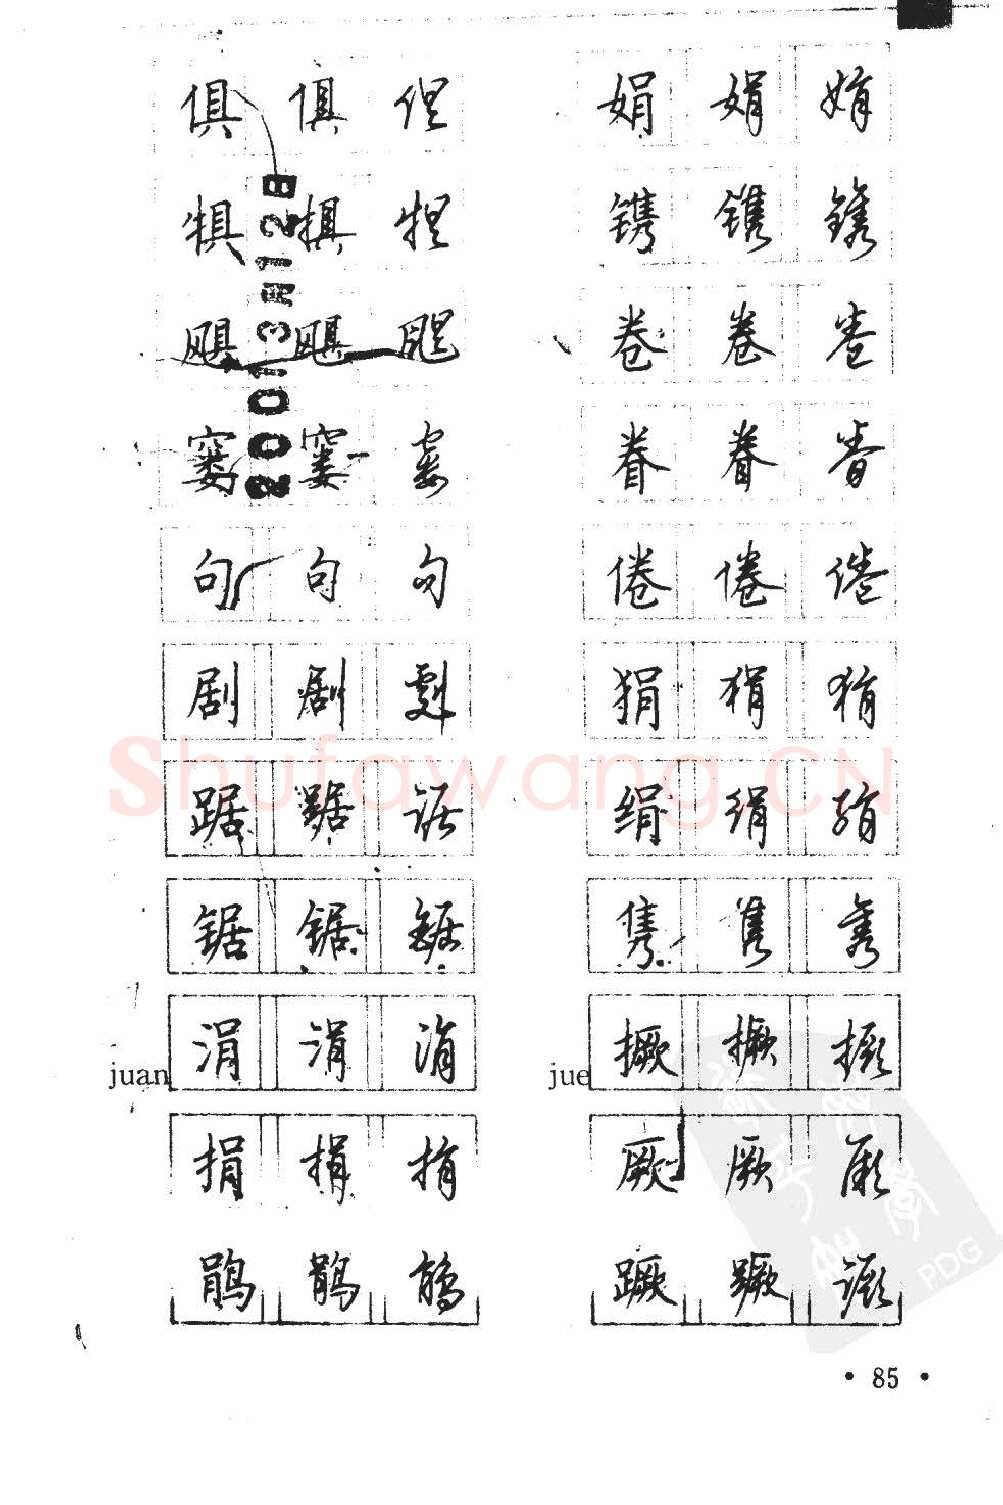 俱 俱 俱
犋 犋 犋
飓 飓 飓
窭 窭 窭
句 句 句
剧 剧 剧
踞 踞 踞
锯 锯 锯
juan 涓 涓 涓
捐 捐 捐
鹃 鹃 鹃
娟 娟 娟
镌 镌 镌
卷 卷 卷
眷 眷 眷
倦 倦 倦
狷 狷 狷
绢 绢 绢
隽 隽 隽
jue 撅 撅 撅
厥 厥 厥
蹶 蹶 蹶
Shufawang.CN
PDG
• 85 •